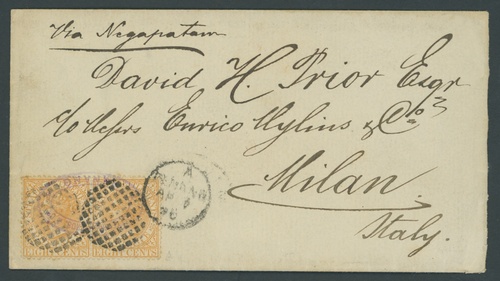 Via Negapatam
David H. Prior Esqr
c/o Messrs Enrico Mylius & Co
Milan.
Italy.
A
PENANG
EIGHT CENTS EIGHT CENTS